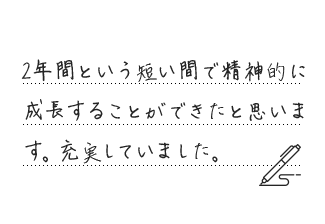 2年間という短い間で精神的に
成長することができたと思いま
す。充実していました。